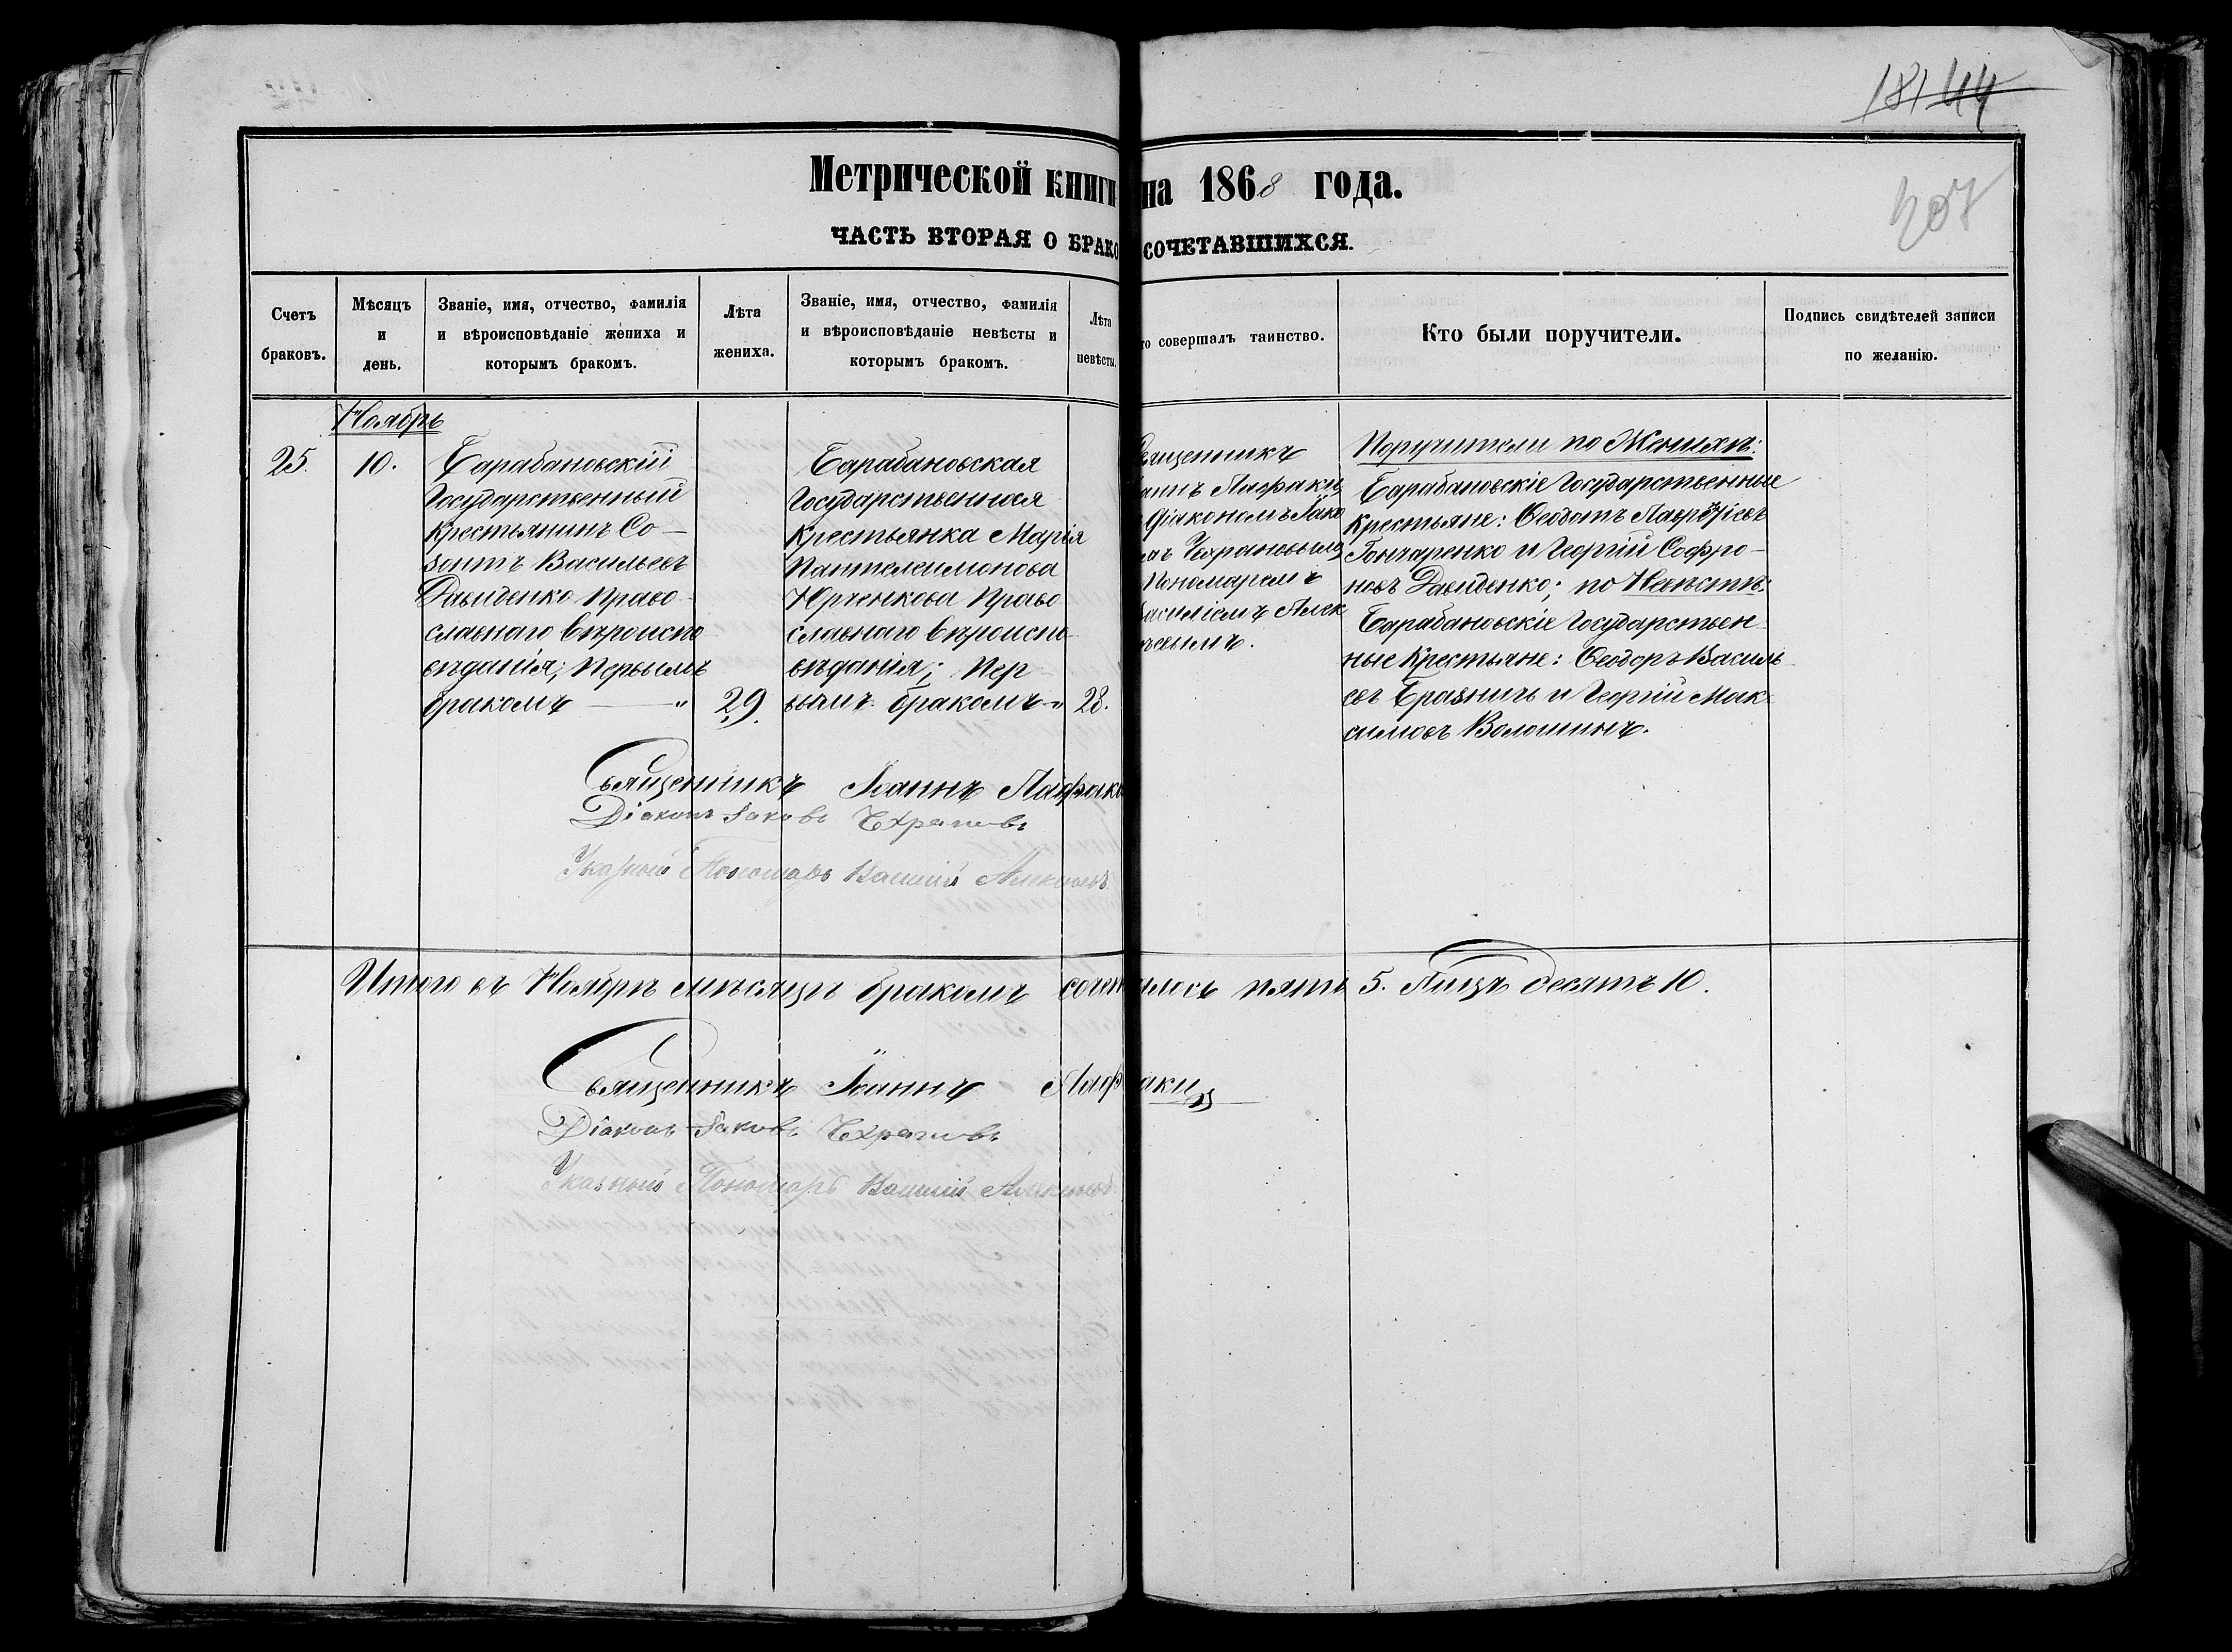 181 44
Метрической книги на 1868 года.
407
ЧАСТЬ ВТОРАЯ О БРАКОСОЧЕТАВШИХСЯ.
Счетъ
браковъ.
Мѣсяцъ
и
день.
Званіе, имя, отчество, фамилія
и вѣроисповѣданіе жениха и
которымъ бракомъ.
Лѣта
жениха.
Званіе, имя, отчество, фамилія
и вѣроисповѣданіе невѣсты и
которымъ бракомъ.
Лѣта
невѣсты.
то совершалъ таинство.
Кто были поручители.
Подпись свидѣтелей записи
по желанію.
Ноябрь
25.
10.
Барабановскій
Государственный
Крестьянинъ Со-
зонтъ Васильевъ
Давиденко Право-
славнаго вѣроиспо-
вѣданія; первымъ
бракомъ — "
29.
Барабановская
Государственная
Крестьянка Марія
Пантелеимонова
Юрченкова Право-
славнаго вѣроиспо-
вѣданія; Пер-
вымъ бракомъ "
28.
Священникъ
аннъ Лафаки
Діакономъ Іако
мъ Чехрановымъ
Пономаремъ
Василіемъ Алек
ѣевымъ.
Поручители по Женихѣ:
Барабановскіе Государственные
Крестьяне: Ѳеодотъ Лаврентіевъ
Гончаренко и Георгій Софро-
новъ Давиденко; по Невѣстѣ:
Барабановскіе Государствен-
ные Крестьяне: Ѳеодоръ Василь-
евъ Бразничь и Георгій Мак-
симовъ Волошинъ.
Священникъ Іоаннъ Лафаки
Діаконъ Іаковъ
Указный Пономарь Василій Алексѣевъ
Итого въ Ноябрѣ мѣсяцѣ бракомъ сочеталось пять 5. Лицъ десять 10.
Священникъ Іоаннъ Лафаки
Діаконъ Іаковъ
Указный Пономарь Василій Алексѣевъ